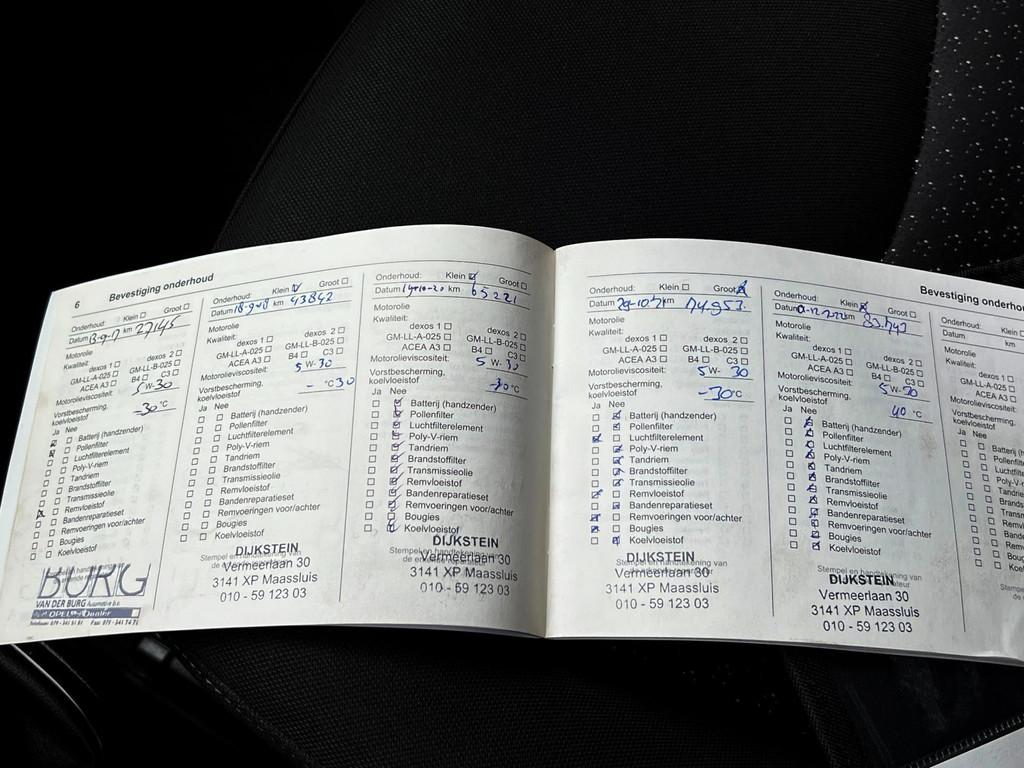 6 Bevestiging onderhoud
Onderhoud: Klein Groot
Datum 13-9-17 km 27145
Motorolie
Kwaliteit:
dexos 1 dexos 2
GM-LL-A-025 GM-LL-B-025
ACEA A3 B4 C3
Motorolieviscositeit: 5W-30
Vorstbescherming,
koelvloeistof -30 °C
Ja Nee
Batterij (handzender)
Pollenfilter
Luchtfilterelement
Poly-V-riem
Tandriem
Brandstoffilter
Transmissieolie
Remvloeistof
Bandenreparatieset
Remvoeringen voor/achter
Bougies
Koelvloeistof
BURG
VAN DER BURG Automotive b.v.
OPEL Dealer
Onderhoud: Klein Groot
Datum 18-9-18 km 43842
Motorolie
Kwaliteit:
dexos 1 dexos 2
GM-LL-A-025 GM-LL-B-025
ACEA A3 B4 C3
Motorolieviscositeit: 5W-30
Vorstbescherming,
koelvloeistof - °C 30
Ja Nee
Batterij (handzender)
Pollenfilter
Luchtfilterelement
Poly-V-riem
Tandriem
Brandstoffilter
Transmissieolie
Remvloeistof
Bandenreparatieset
Remvoeringen voor/achter
Bougies
Koelvloeistof
Stempel en handtekening van
DIJKSTEIN
Vermeerlaan 30
3141 XP Maassluis
010 - 59 123 03
Onderhoud: Klein Groot
Datum km 65221
Motorolie
Kwaliteit:
dexos 1 dexos 2
GM-LL-A-025 GM-LL-B-025
ACEA A3 B4 C3
Motorolieviscositeit: 5W-30
Vorstbescherming,
koelvloeistof -30 °C
Ja Nee
Batterij (handzender)
Pollenfilter
Luchtfilterelement
Poly-V-riem
Tandriem
Brandstoffilter
Transmissieolie
Remvloeistof
Bandenreparatieset
Remvoeringen voor/achter
Bougies
Koelvloeistof
Stempel en handtekening van
DIJKSTEIN
Vermeerlaan 30
3141 XP Maassluis
010 - 59 123 03
Bevestiging onderho
Onderhoud: Klein Groot
Datum km 74953.
Motorolie
Kwaliteit:
dexos 1 dexos 2
GM-LL-A-025 GM-LL-B-025
ACEA A3 B4 C3
Motorolieviscositeit: 5W-30
Vorstbescherming,
koelvloeistof -30 °C
Ja Nee
Batterij (handzender)
Pollenfilter
Luchtfilterelement
Poly-V-riem
Tandriem
Brandstoffilter
Transmissieolie
Remvloeistof
Bandenreparatieset
Remvoeringen voor/achter
Bougies
Koelvloeistof
DIJKSTEIN
Vermeerlaan 30
3141 XP Maassluis
010 - 59 123 03
Onderhoud: Klein Groot
Datum km 83.743
Motorolie
Kwaliteit:
dexos 1 dexos 2
GM-LL-A-025 GM-LL-B-025
ACEA A3 B4 C3
Motorolieviscositeit: 5W-30
Vorstbescherming,
koelvloeistof 40 °C
Ja Nee
Batterij (handzender)
Pollenfilter
Luchtfilterelement
Poly-V-riem
Tandriem
Brandstoffilter
Transmissieolie
Remvloeistof
Bandenreparatieset
Remvoeringen voor/achter
Bougies
Koelvloeistof
Stempel en handtekening van
DIJKSTEIN
Vermeerlaan 30
3141 XP Maassluis
010 - 59 123 03
Onderhoud: Klein
Datum km
Motorolie
Kwaliteit:
dexos 1
GM-LL-A-025
ACEA A3
Motorolieviscositeit:
Vorstbescherming,
koelvloeistof
Ja Nee
Batterij (h
Pollenfilte
Luchtfilte
Poly-V-r
Tandrie
Brands
Trans
Remv
Band
Rem
Bou
Koe